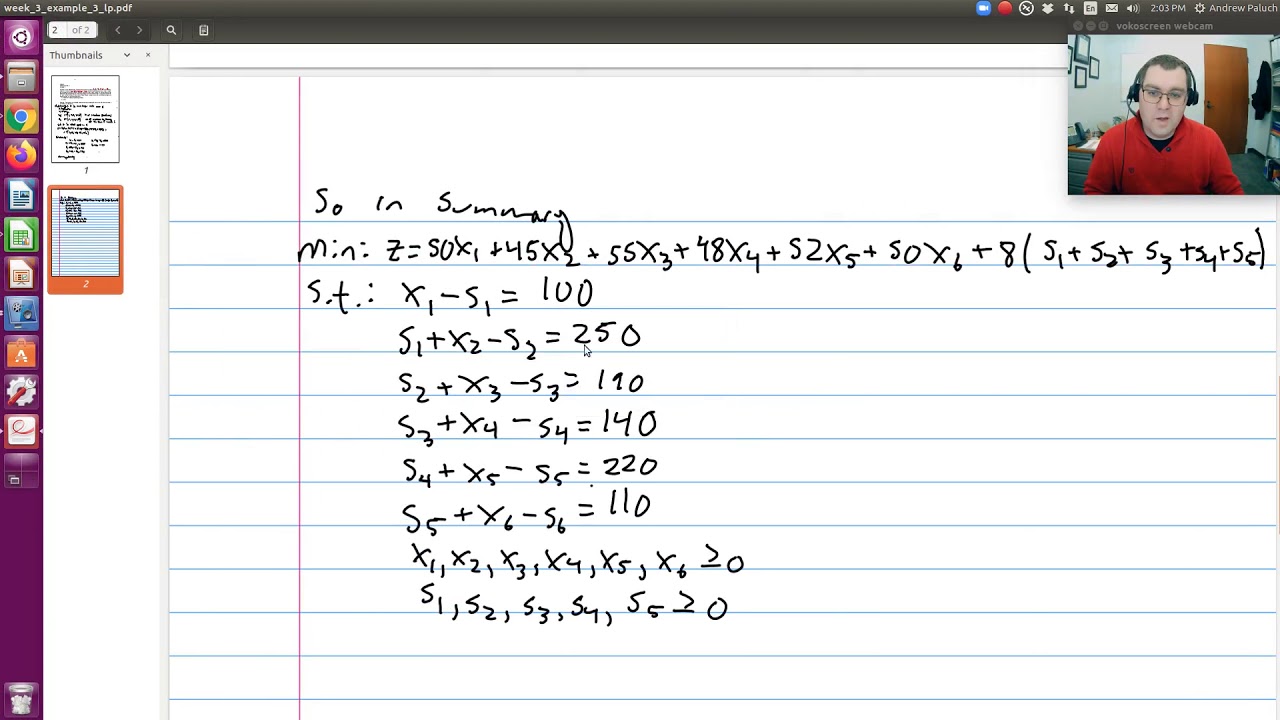 week_3_example_3_lp.pdf
En
2:03 PM
Andrew Paluch
2 of 2
vokoscreen webcam
Thumbnails
1
2
So in summary
Min: Z = 50x₁ + 45x₂ + 55x₃ + 48x₄ + 52x₅ + 50x₆ + 8(s₁ + s₂ + s₃ + s₄ + s₅)
s.t.: x₁ - s₁ = 100
s₁ + x₂ - s₂ = 250
s₂ + x₃ - s₃ = 190
s₃ + x₄ - s₄ = 140
s₄ + x₅ - s₅ = 220
s₅ + x₆ - s₆ = 110
x₁, x₂, x₃, x₄, x₅, x₆ ≥ 0
s₁, s₂, s₃, s₄, s₅ ≥ 0